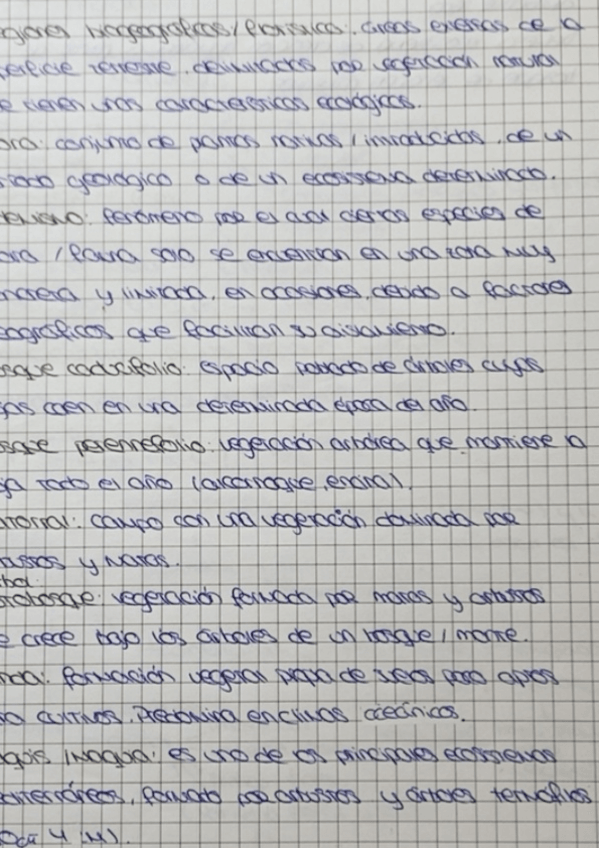 biogeográficas/florística: áreas extensas de la
terrestre. delimitadas por vegetación natural
e tienen unas características ecológicas.
ora: conjunto de plantas nativas/introducidas, de un
geológico o de un ecosistema determinado.
fenómeno por el cual ciertas especies de
ora / fauna solo se encuentran en una zona muy
y limitada, en ocasiones, debido a factores
eográficos que facilitan su aislamiento.
sque caducifolio: espacio poblado de árboles cuyas
jas caen en una determinada época del año.
sque perennefolio: vegetación arbórea que mantiene la
ja todo el año (alcornoque, encina).
atorral: campo con una vegetación dominada por
y matas.
otobosque: vegetación formada por matas y arbustos
e crece bajo los árboles de un bosque/monte.
nda: formación vegetal propia de suelos poco aptos
cultivos. Predomina en climas oceánicos.
quis/maquia: es uno de los principales ecosistemas
mediterráneos, formado por arbustos y árboles termófilos